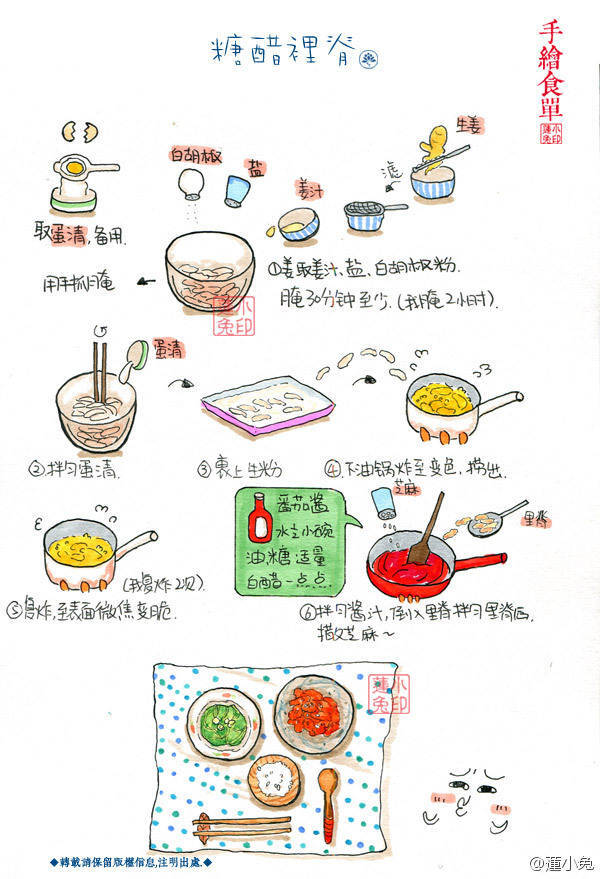 糖醋裡脊
手繪食單
蓮小兔印
白胡椒
盐
姜汁
滤
生姜
取蛋清,备用.
用手抓腌
①姜取姜汁、盐、白胡椒粉.
腌30分钟至少.(我腌2小时).
蓮小兔印
蛋清
②拌匀蛋清.
③裹上生粉
④下油锅炸至变色,捞出.
番茄酱
水1小碗
油、糖适量
白醋一点点.
芝麻
里脊
(我复炸2次).
⑤复炸,至表面微焦变脆.
⑥拌匀酱汁,倒入里脊拌匀里脊后,
撒芝麻~
蓮小兔印
◆轉載請保留版權信息,注明出處.◆
@蓮小兔